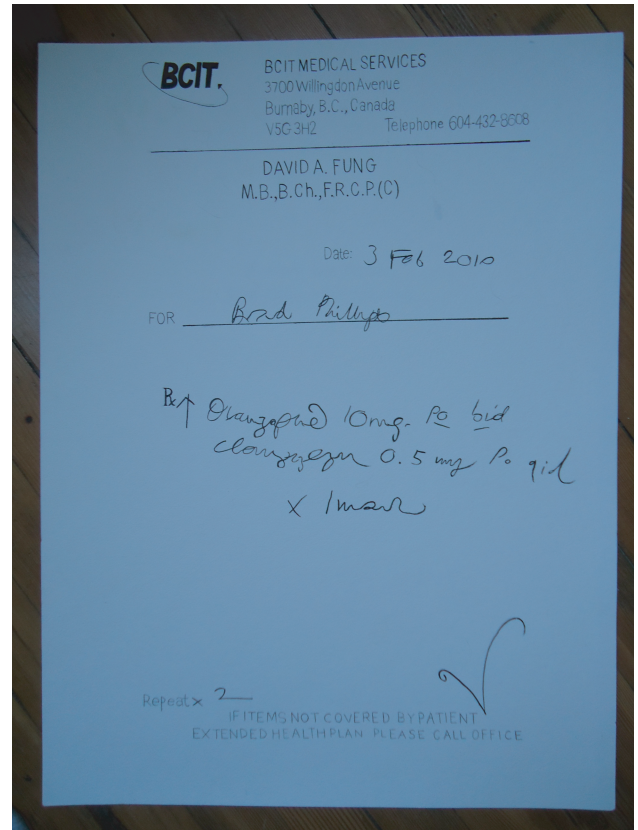 BCIT.
BCIT MEDICAL SERVICES
3700 Willingdon Avenue
Burnaby, B.C., Canada
V5G 3H2 Telephone 604-432-8608
DAVID A. FUNG
M.B.,B.Ch.,F.R.C.P.(C)
Date: 3 Feb 2010
FOR Brad Phillips
Rx ↑ 10mg. Po bid
0.5 mg Po qid
x 1
Repeat x 2
IF ITEMS NOT COVERED BY PATIENT
EXTENDED HEALTH PLAN PLEASE CALL OFFICE